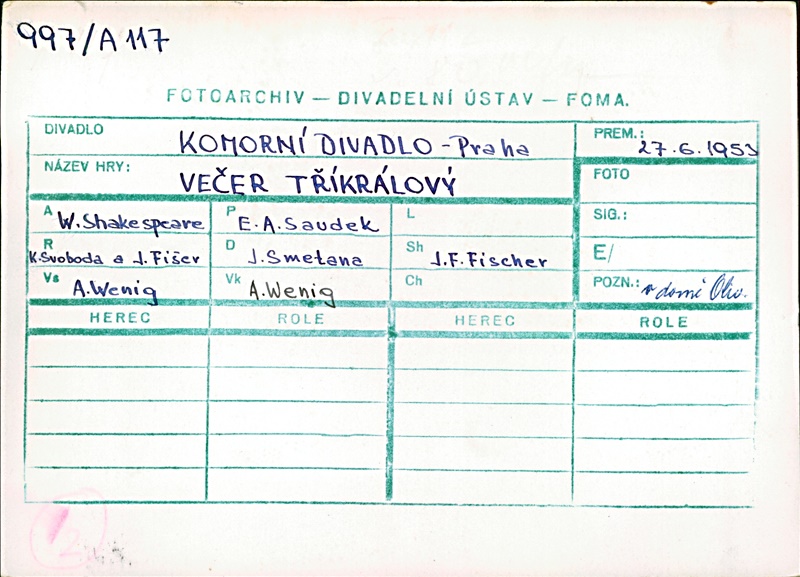 997/A 117
FOTOARCHIV — DIVADELNÍ ÚSTAV — FOMA.
DIVADLO KOMORNÍ DIVADLO - Praha PREM.: 27.6.1953
NÁZEV HRY: VEČER TŘÍKRÁLOVÝ FOTO
A W. Shakespeare P E.A. Saudek L SIG.:
R K. Svoboda a J. Fišer D J. Smetana Sh J.F. Fischer E/
Vs A. Wenig Vk A. Wenig Ch POZN.: v domě Oliv.
HEREC ROLE HEREC ROLE
1/2